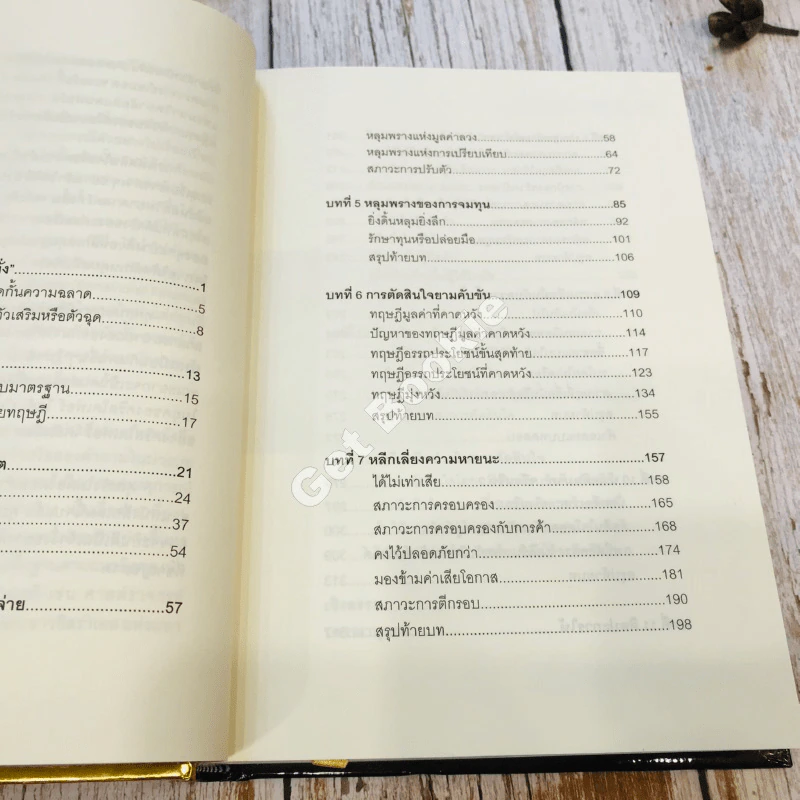 ั้ง"......1
กกั้นความฉลาด......5
ตัวเสริมหรือตัวฉุด......8
......13
บมาตรฐาน......15
ยทฤษฎี......17
ต......21
......24
......37
......54
จ่าย......57
หลุมพรางแห่งมูลค่าลวง......58
หลุมพรางแห่งการเปรียบเทียบ......64
สภาวะการปรับตัว......72
บทที่ 5 หลุมพรางของการจมทุน......85
ยิ่งดิ้นหลุมยิ่งลึก......92
รักษาทุนหรือปล่อยมือ......101
สรุปท้ายบท......106
บทที่ 6 การตัดสินใจยามคับขัน......109
ทฤษฎีมูลค่าที่คาดหวัง......110
ปัญหาของทฤษฎีมูลค่าคาดหวัง......114
ทฤษฎีอรรถประโยชน์ขั้นสุดท้าย......117
ทฤษฎีอรรถประโยชน์ที่คาดหวัง......123
ทฤษฎีมุ่งหวัง......134
สรุปท้ายบท......155
บทที่ 7 หลีกเลี่ยงความหายนะ......157
ได้ไม่เท่าเสีย......158
สภาวะการครอบครอง......165
สภาวะการครอบครองกับการค้า......168
คงไว้ปลอดภัยกว่า......174
มองข้ามค่าเสียโอกาส......181
สภาวะการตีกรอบ......190
สรุปท้ายบท......198
Get Bookie